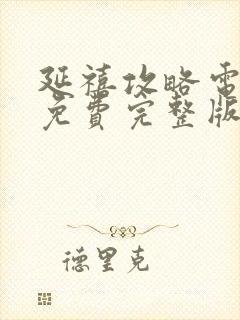 延禧攻略電
免費完整版
德里克